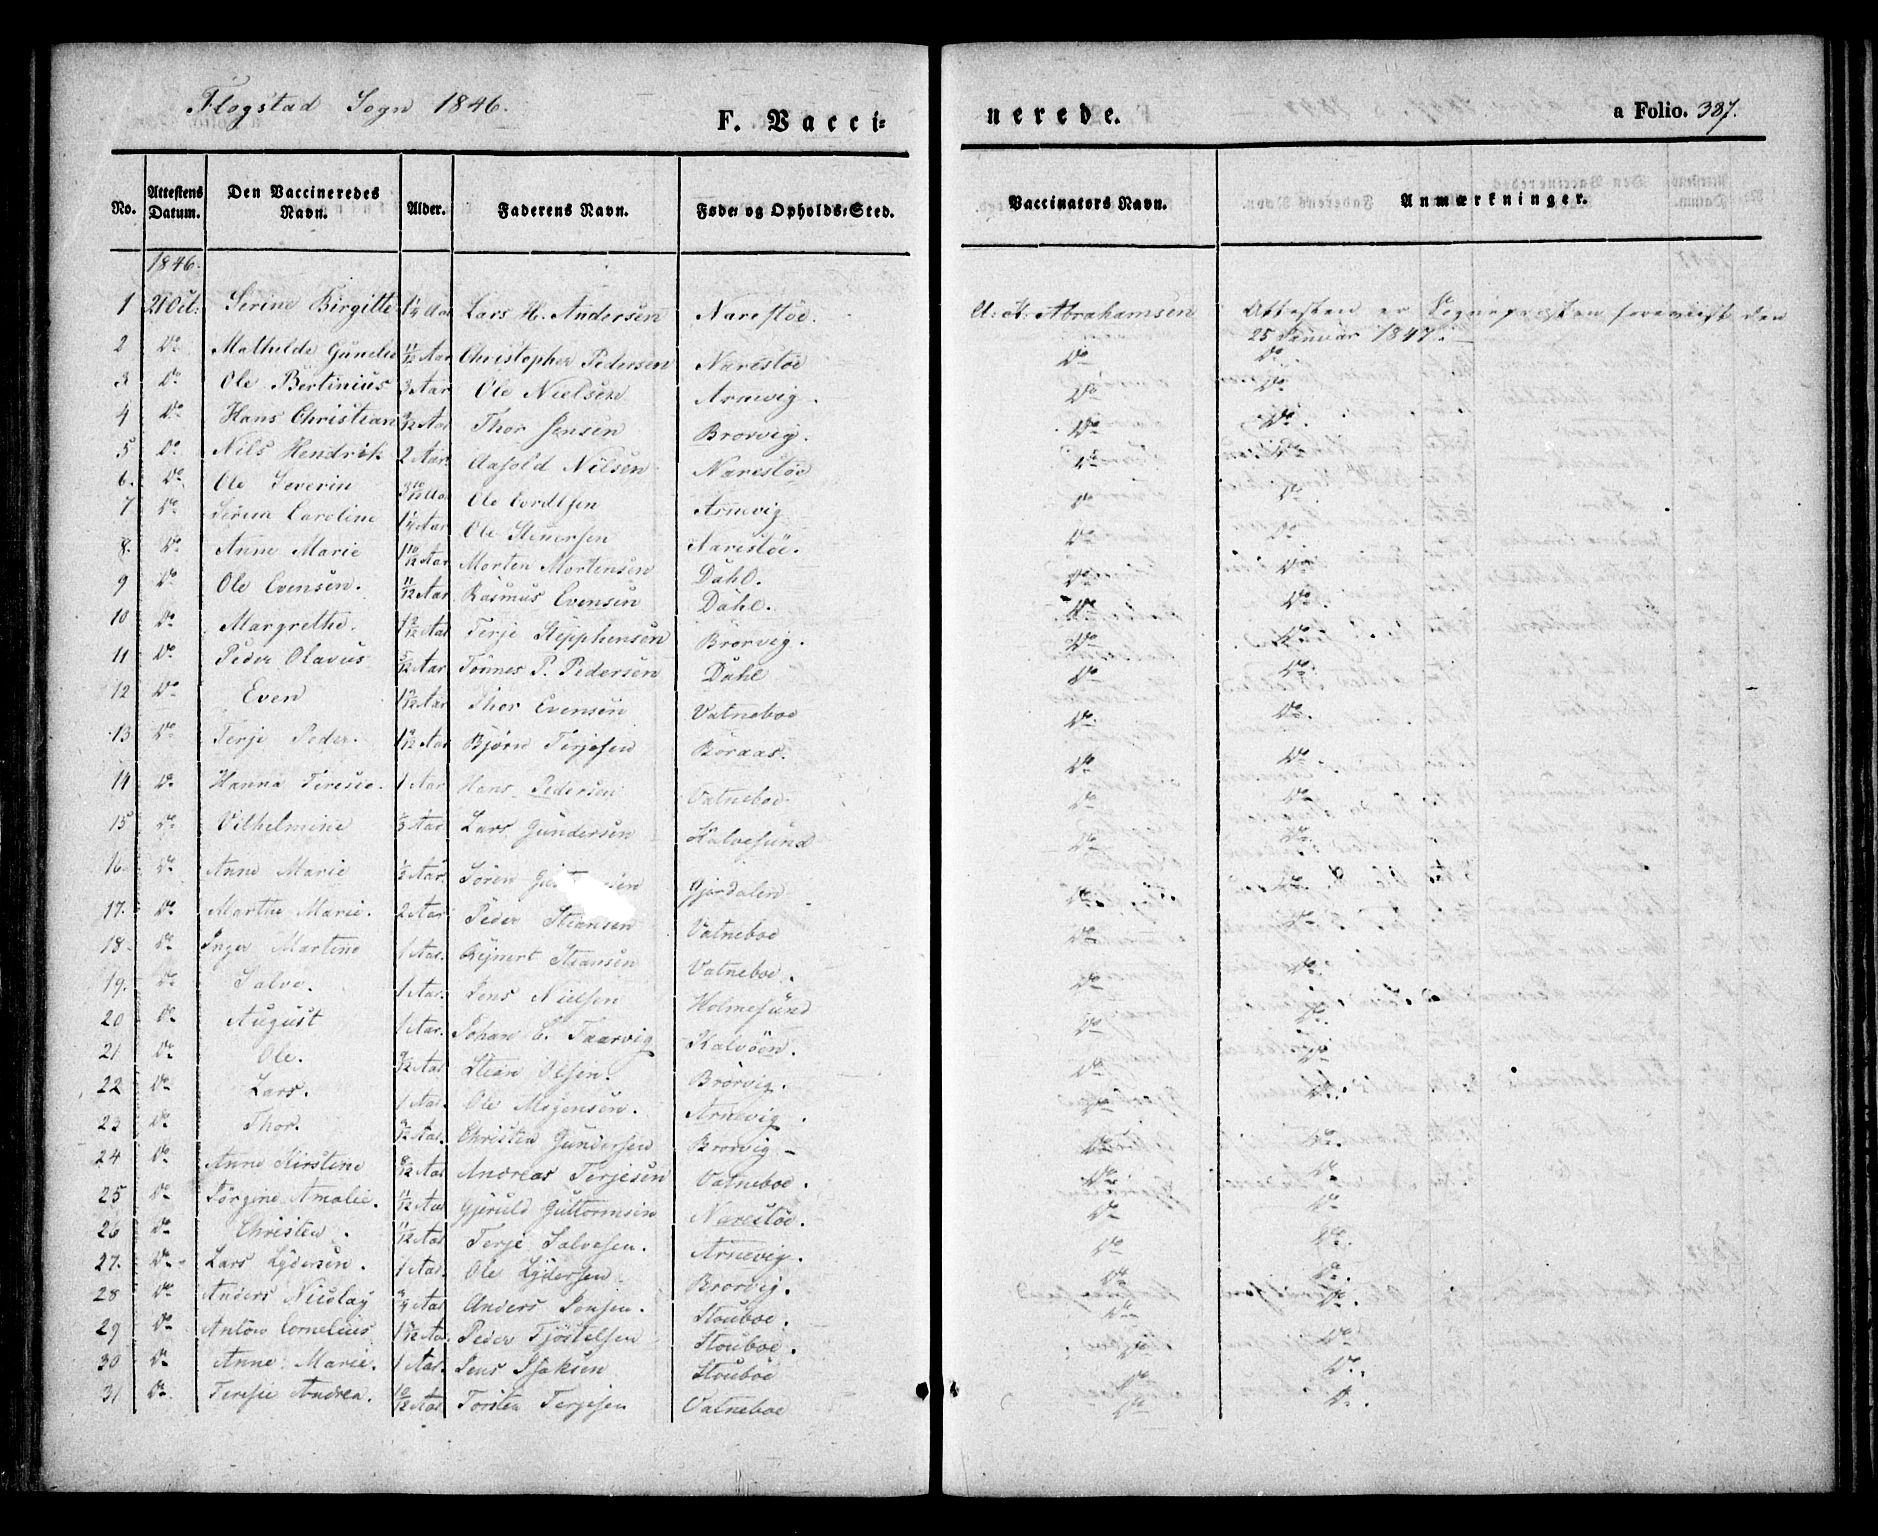 Flogstad Sogn 1846.
F. Vacci=
nerede.
a Folio. 387.
No. Attestens Datum. Den Vaccineredes Navn. Alder. Faderens Navn. Føde= og Opholds=Sted. Vaccinators Navn. Anmærkninger.
1846.
1 21 Oct: Serine Birgitte 1¼ Aar Lars H. Andersen Narestöe. A: A: Abrahamsen Attesten er Sognepresten foreviist den
25 Januar 1847.
2 Do Mathilde 11/12 Aar Christopher Pedersen Narestöe Do Do
3 Do Ole Bertinius 3 Aar Ole Nielsen Arnevig. Do Do
4 Do Hans Christian 9/12 Aar Thor Jensen Brorvig. Do Do.
5 Do Nils Hendrik 2 Aar. Aasold Nilsen Narestöe Do Do
6. Do Ole Severin 3 10/12 Aar Ole Evertsen Arnevig Do Do.
7 Do Serine Caroline 1¼ Aar Ole Stenersen Narestöe. Do Do.
8. Do Anne Marie 1 10/12 Aar Morten Mortensen Dahl. Do Do.
9 Do Ole Evensen. 11/12 Aar Rasmus Evensen Dahl. Do Do.
10 Do Margrethe. 1 9/12 Aar Terje Stepphensen Brörvig. Do Do.
11 Do Peder Olavus 5/12 Aar Tönnes P. Pedersen Dahl Do Do.
12 Do Even 1 9/12 Aar Thor Evensen Vatneboe Do Do.
13 Do Terje Peder. 1 9/12 Aar Björn Terjesen Boraas. Do Do.
14 Do Hanna Teresie. 1 Aar Hans Pedersen Vatneboe Do Do
15 Do Vilhelmine ⅓ Aar Lars Gundersen Kalvesund Do Do.
16. Do Anne Marie ½ Aar. Sören Gjerdalen Do. Do
17. Do Marthe Marie. 2 Aar Peder Steansen Vatneboe Do Do
18 Do Inger Martine 1 Aar. Reinert Steansen Vatneboe. Do Do.
19. Do Salve. 1 Aar. Jens Nielsen Holmesund Do Do.
20 Do August 1 Aar. Johan C. Taarvig Kalvöen. Do Do
21 Do Ole. 9/12 Aar Stean Olsen. Brörvig. Do Do.
22 Do Lars. 1 Aar. Ole Mogensen. Arnevig. Do Do.
23 Do Thor. 9/12 Aar. Christen Gundersen Brorvig - Do Do
24 Do Anne Kirstine 8/12 Aar Andreas Terjesen Vatneboe. Do Do
25 Do Jörgine Amalie. 11/12 Aar Gjeruld Guttormsen Narestöe. Do Do
26 Do Christen. 11/12 Aar Terje Salvesen. Arnevig. Do Do.
27. Do Lars Lydersen. 1 Aar. Ole Lydersen Brorvig. Do Do.
28 Do Anders Nicolay ¾ Aar Anders Jensen. Stouboe. Do Do.
29 Do Anton Cornelius Peder Tjöstelsen Stouboe. Do Do
30 Do Anne Marie. 1 Aar. Jens Isaksen Stouboe Do Do.
31 Do Teresie Andrea. 10/12 Aar Torsten Terjesen Vatneboe Do Do.